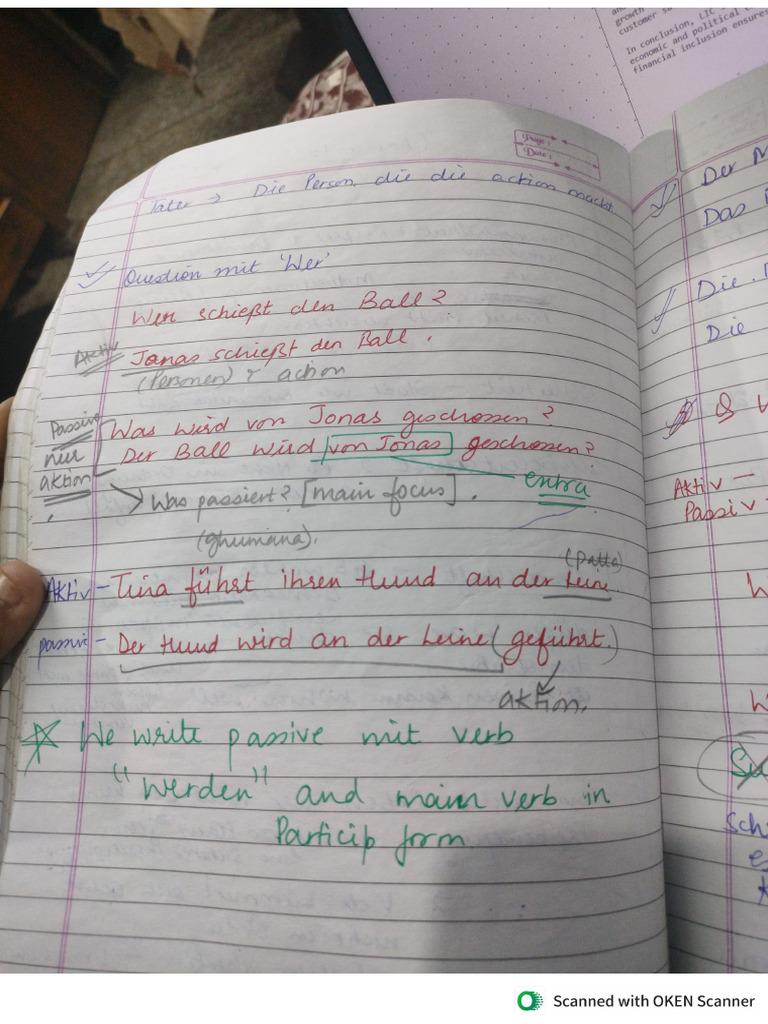 growth
customer
In conclusion, LIC
economic and political
financial inclusion ensures
Page:
Date:
Täter → Die Person, die die action macht.
Question mit 'Wer'
Wer schießt den Ball?
Aktiv Jonas schießt den Ball.
(Personen) r action
Passive Was wird von Jonas geschossen?
nur Der Ball wird von Jonas geschossen?
aktion extra
→ Was passiert? [main focus].
(ghumana).
(Patta)
Aktiv – Tina führt ihren Hund an der Leine.
passiv – Der Hund wird an der Leine (geführt.)
aktion.
We write passive mit verb
"werden" and main verb in
Particip form
Der
Das
Die
Die
&
Aktiv –
Passiv –
Sch
Scanned with OKEN Scanner